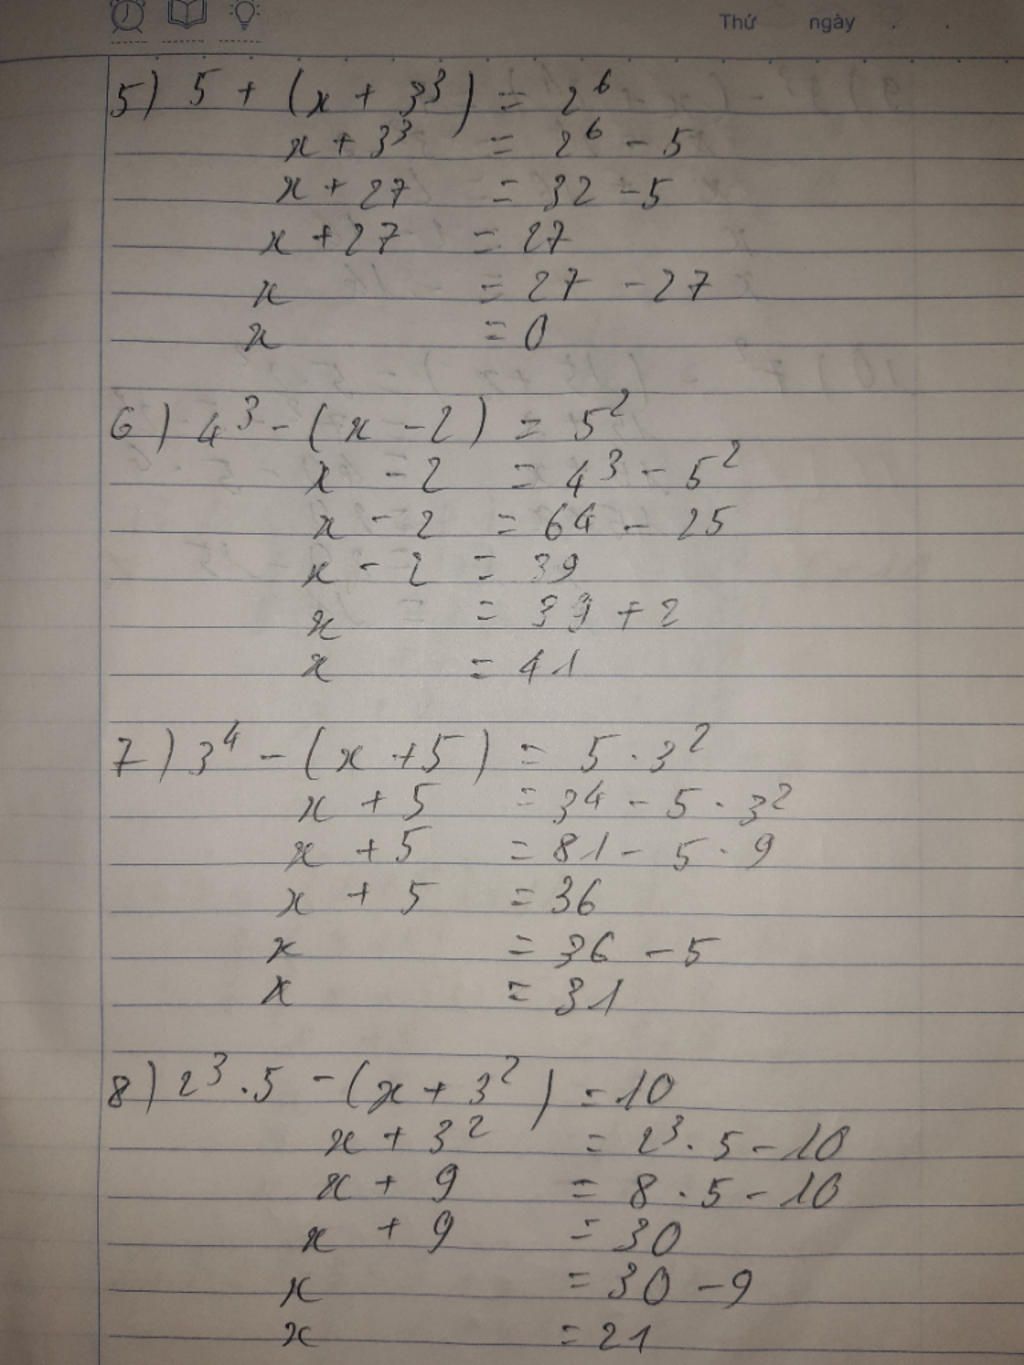 Thứ ngày . .
5) 5 + (x + 3³) = 2⁶
x + 3³ = 2⁶ - 5
x + 27 = 32 - 5
x + 27 = 27
x = 27 - 27
x = 0
6) 4³ - (x - 2) = 5²
x - 2 = 4³ - 5²
x - 2 = 64 - 25
x - 2 = 39
x = 39 + 2
x = 41
7) 3⁴ - (x + 5) = 5 . 3²
x + 5 = 3⁴ - 5 . 3²
x + 5 = 81 - 5 . 9
x + 5 = 36
x = 36 - 5
x = 31
8) 2³ . 5 - (x + 3²) = 10
x + 3² = 2³ . 5 - 10
x + 9 = 8 . 5 - 10
x + 9 = 30
x = 30 - 9
x = 21